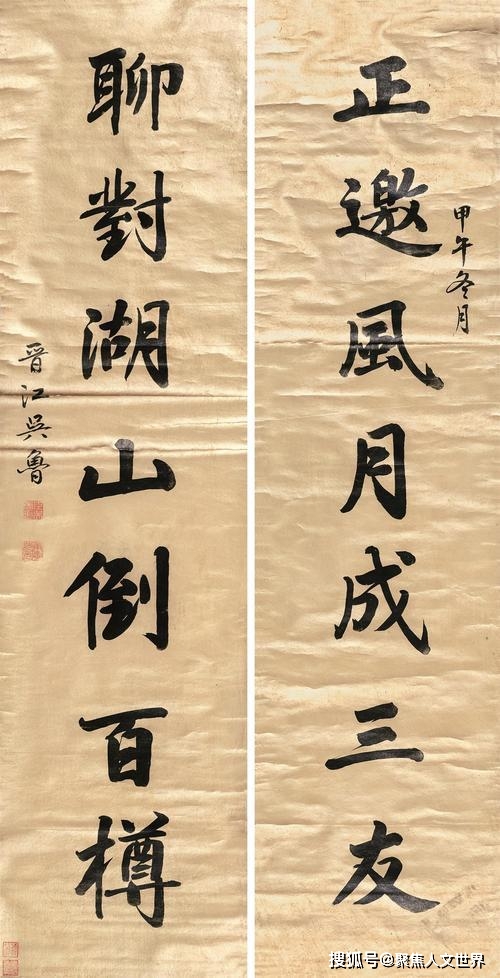 正邀風月成三友
甲午冬月
聊對湖山倒百樽
晋江吳魯
搜狐号@聚焦人文世界